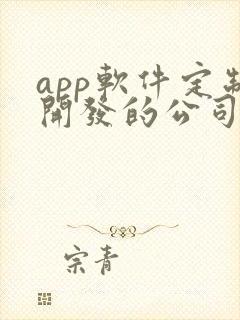 app軟件定制
開發的公司
宗青